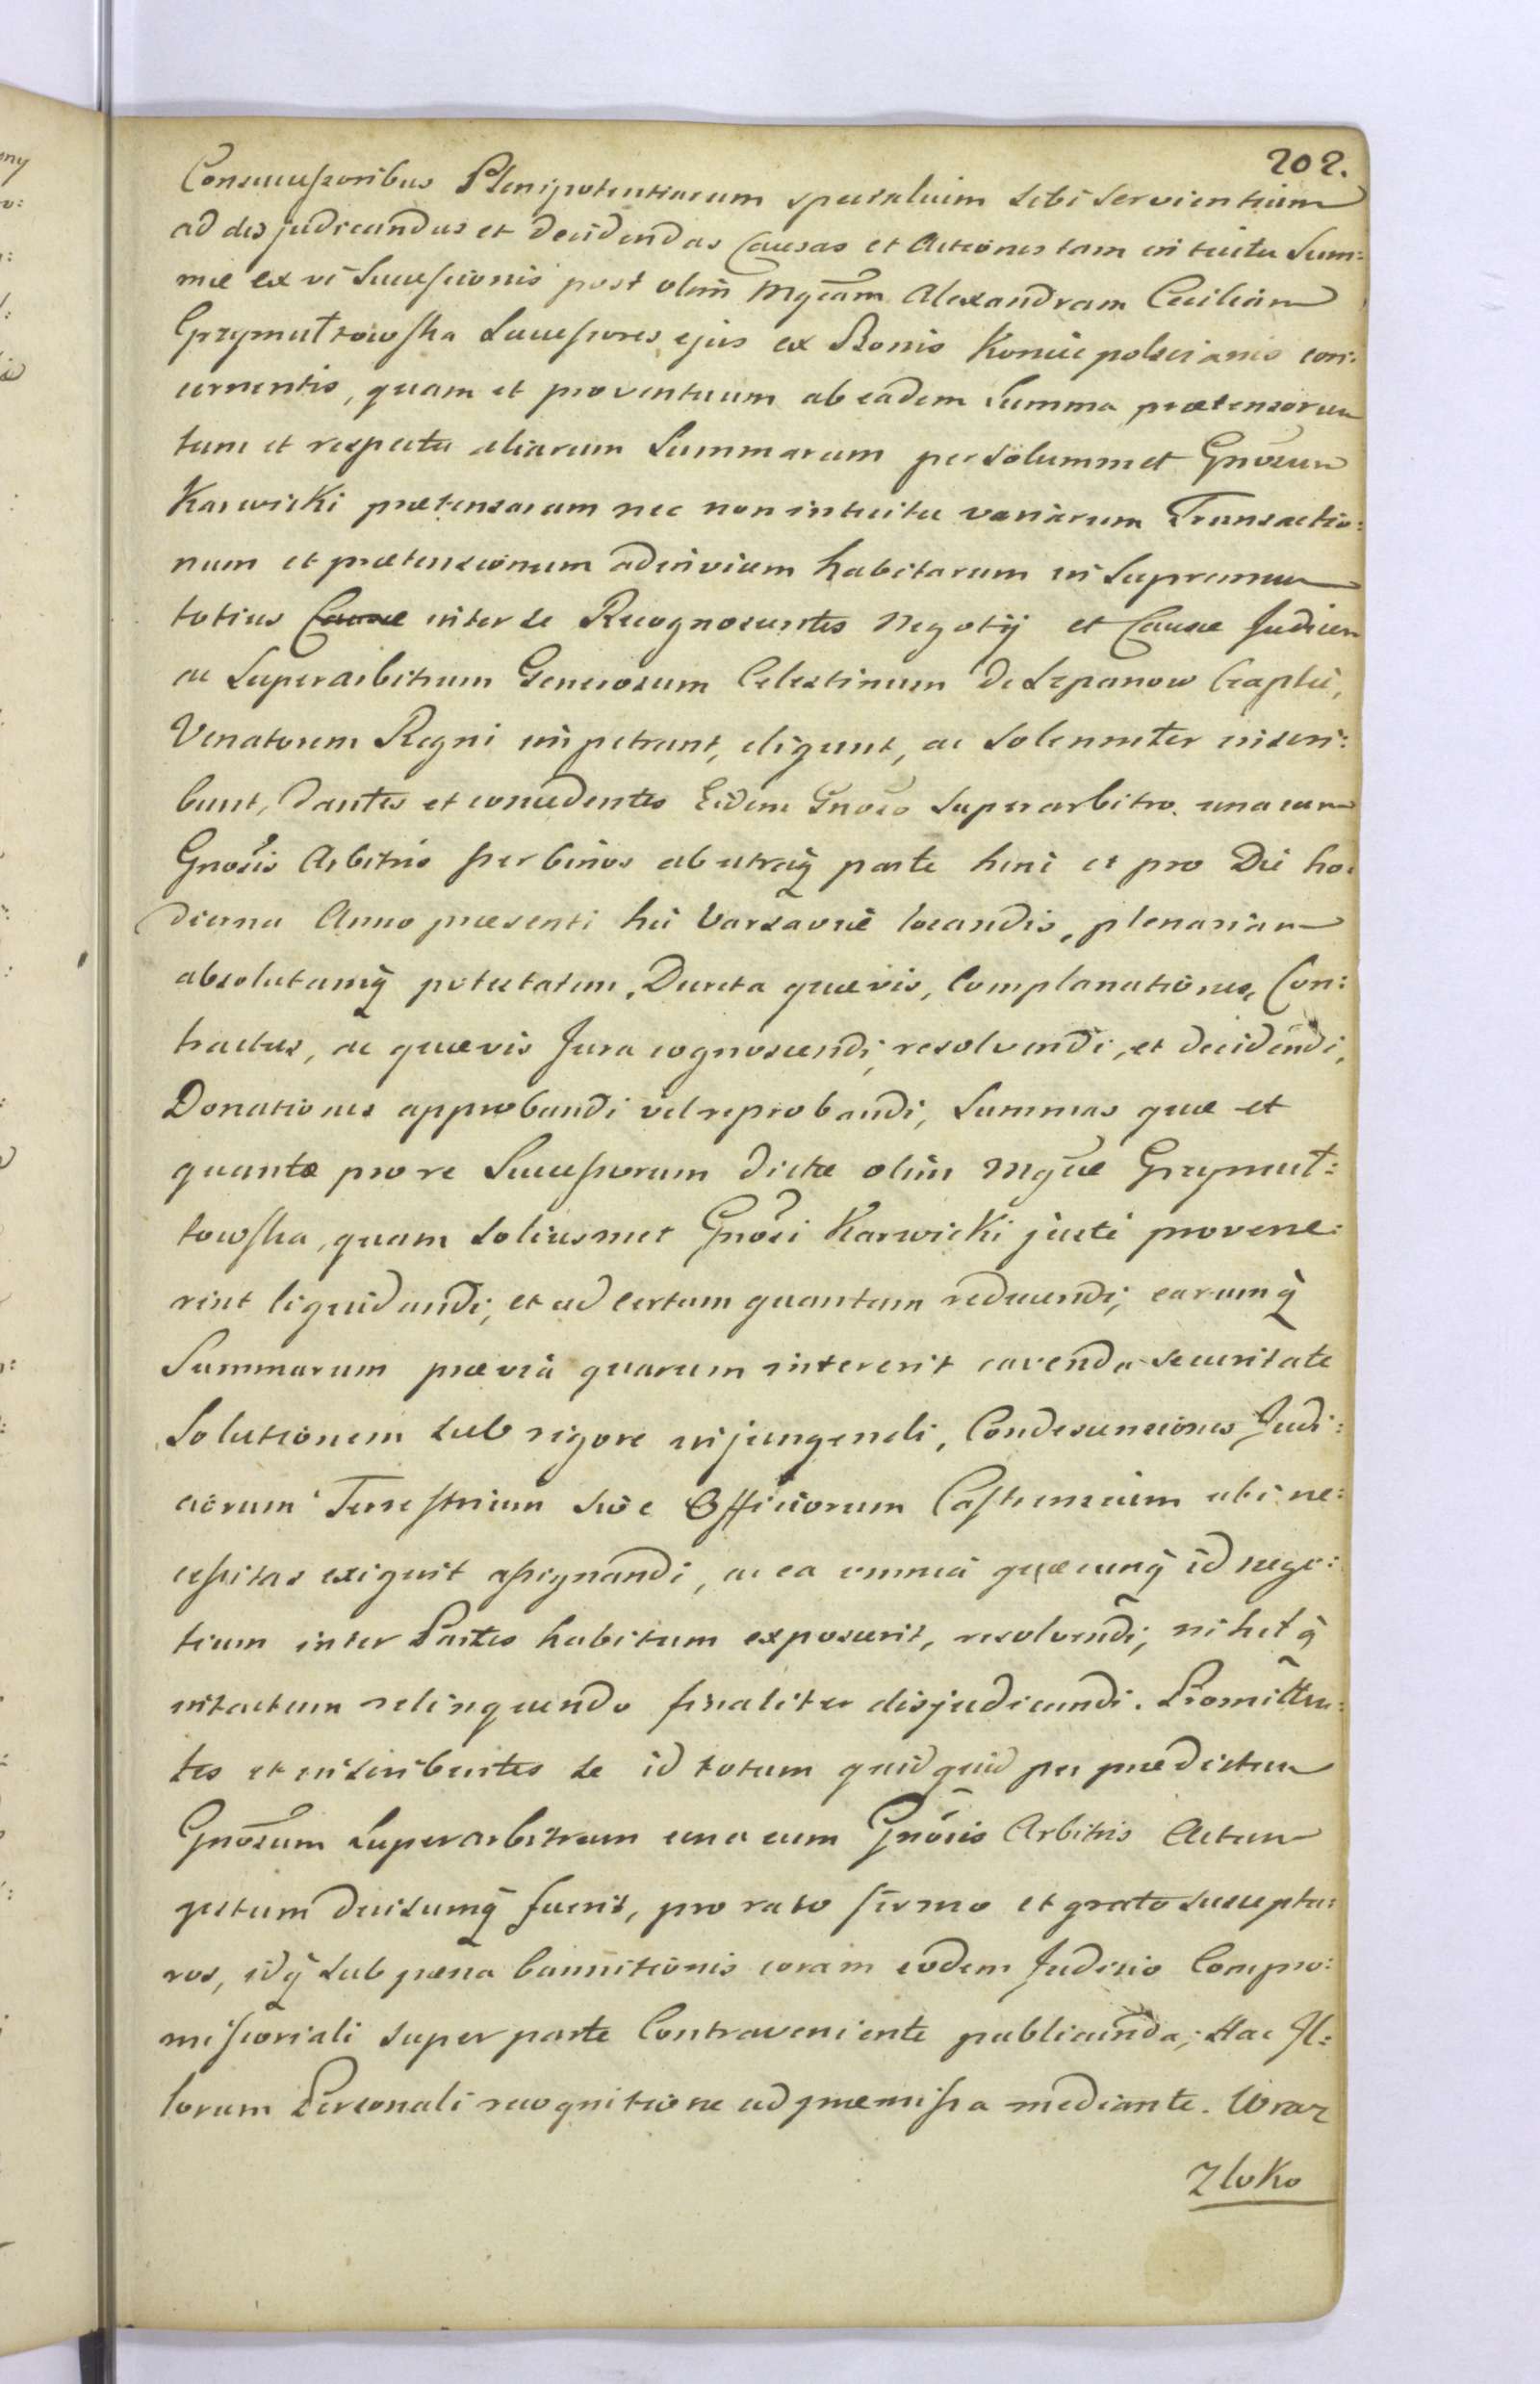 202.
Consuccessoribus Plenipotentiarum specialium sibi servientium
ad disjudicandas et decidendas Causas et Actiones tam intuitu Sum:
mæ ex vi Successionis post olim Mgcam Alexandram Ceciliam
Grzymułtowska Successores ejus ex Bonis Koniecpolscianis con:
cernentis, quam et proventuum ab eadem Summa prætensorum
tum et respectu aliarum Summarum per solummet Gnosum
Karwicki prætensarum nec non intuitu variarum Transactio:
num et prætensionum adinvicem habitarum in Supremum
totius Causæ inter se Recognoscentes Negotij et Causæ Judicem
ac Superarbitrum Generosum Celestinum de Szpanow Czaplic,
Venatorem Regni impetrant, eligunt, ac solenniter inscri:
bunt, dantes et concedentes Eidem Gnoso Superarbitro. una cum
Gnosis Arbitris per binos ab utraq parte hinc et pro Die ho:
dierna Anno præsenti hic Varsaviæ locandis, plenariam
absolutamq potestatem, Decreta quævis, Complanationes, Con:
tractus, ac quævis Jura cognoscendi, resolvendi, et decidendi,
Donationes approbandi vel reprobandi, Summas quæ et
quantæ pro re Successorum dictæ olim Mgcæ Grzymuł:
towska, quam soliusmet Gnosi Karwicki juste provene:
rint liquidandi, et ad certum quantum reducendi, earumq
Summarum prævia quarum intererit cavenda securitate
Solutionem sub rigore injungendi, Condescensiones Judi:
ciorum Terrestrium sive Officiorum Castrensium ubi ne:
cessitas exigerit assignandi, ac ea omnia quæcunq id nego:
tium inter Partes habitum exposcerit, resolvendi, nihilq
intactum relinquendo finaliter disjudicandi. Promitten:
tes et inscribentes se id totum quidquid per prædictum
Gnosum Superarbitrum una cum Gnosis Arbitris Actum
gestum decisumq fuerit, pro rato firmo et grato susceptu:
ros, idq sub pæna bannitionis coram eodem Judicio Compro:
missoriali super parte Contraveniente publicanda; Hac Il:
lorum Personali recognitione ad præmissa mediante. Wraz
Zloko